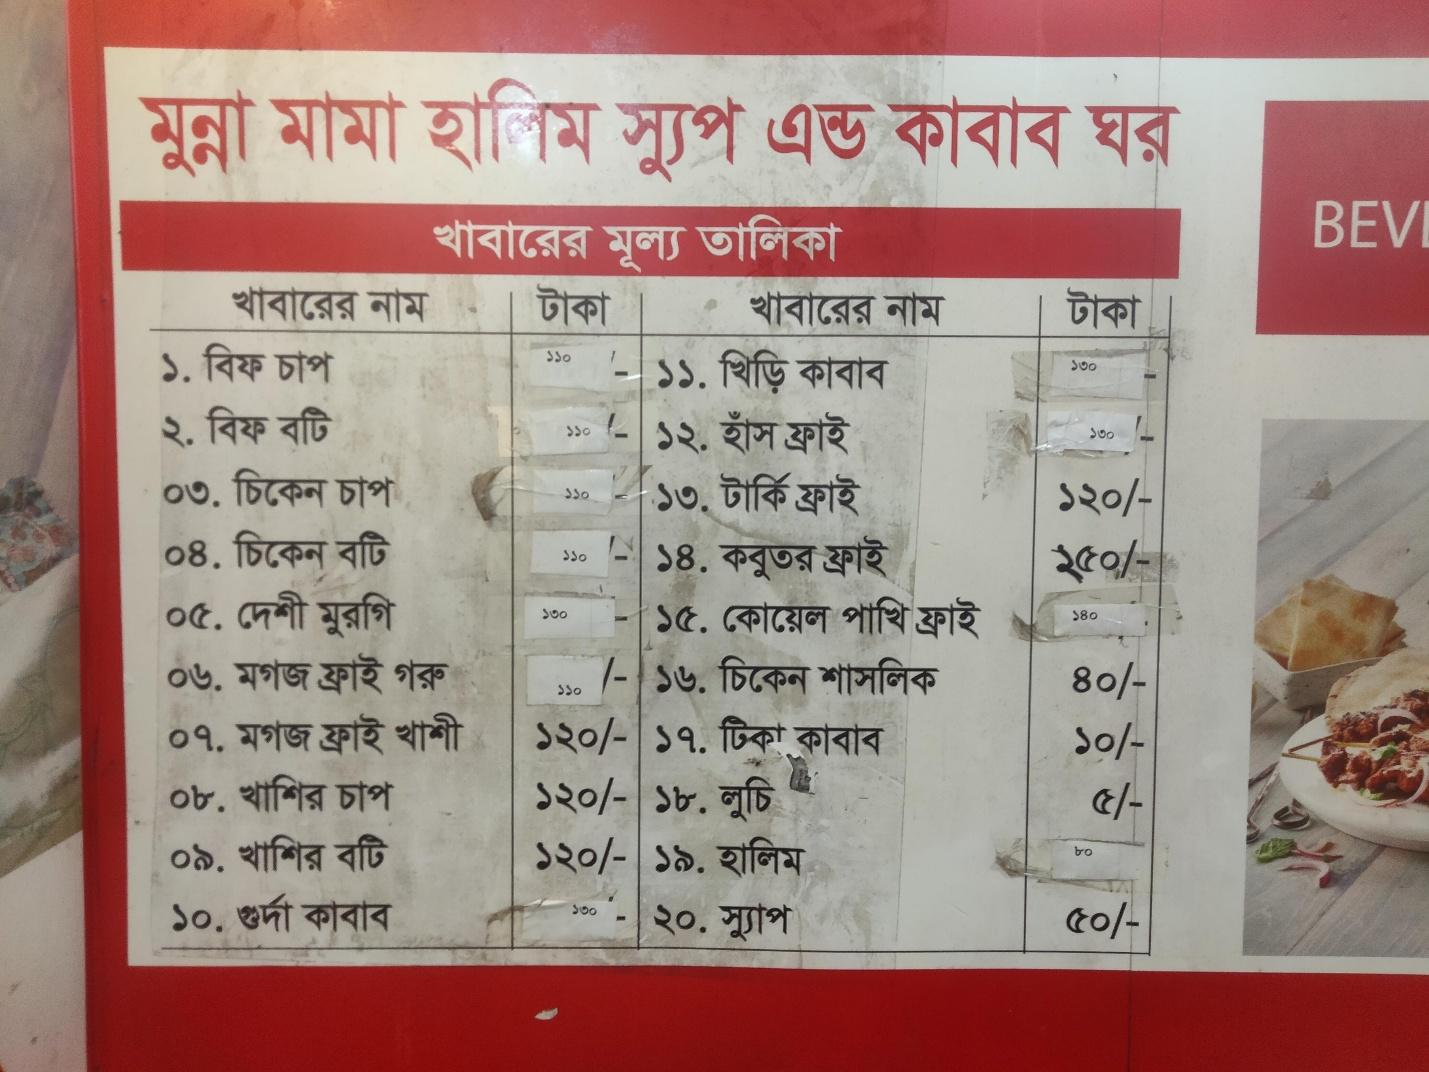 মুন্না মামা হালিম স্যুপ এন্ড কাবাব ঘর
খাবারের মূল্য তালিকা
খাবারের নাম টাকা খাবারের নাম টাকা
১. বিফ চাপ ১১০ /- ১১. খিড়ি কাবাব ১৩০ -
২. বিফ বটি ১১০ /- ১২. হাঁস ফ্রাই ১৩০ /-
০৩. চিকেন চাপ ১১০ - ১৩. টার্কি ফ্রাই ১২০/-
০৪. চিকেন বটি ১১০ /- ১৪. কবুতর ফ্রাই ২৫০/-
০৫. দেশী মুরগি ১৩০ - ১৫. কোয়েল পাখি ফ্রাই ১৪০
০৬. মগজ ফ্রাই গরু ১১০ /- ১৬. চিকেন শাসলিক ৪০/-
০৭. মগজ ফ্রাই খাশী ১২০/- ১৭. টিকা কাবাব ১০/-
০৮. খাশির চাপ ১২০/- ১৮. লুচি ৫/-
০৯. খাশির বটি ১২০/- ১৯. হালিম ৮০
১০. গুর্দা কাবাব ১৩০ - ২০. স্যুাপ ৫০/-